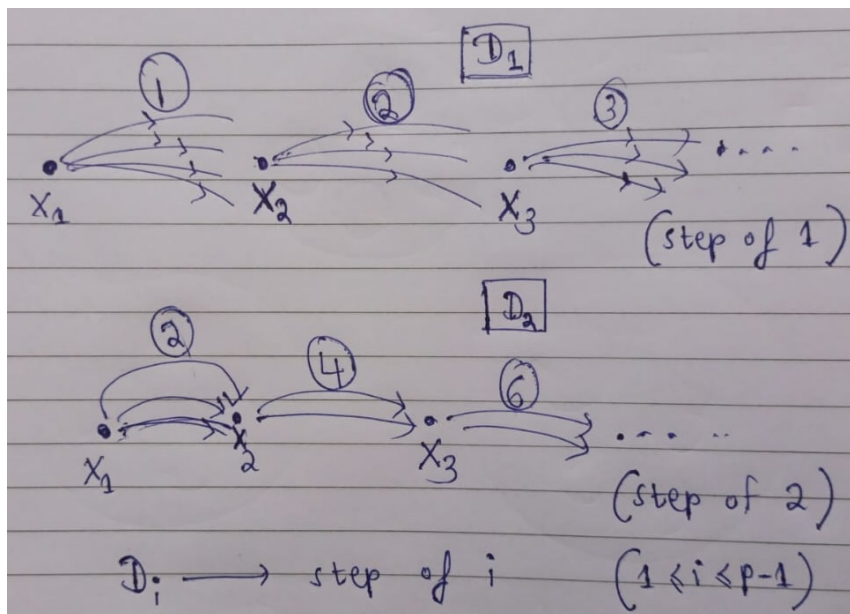 D₁
① ② ③
X₁ X₂ X₃ ....
(step of 1)
D₂
② ④ ⑥
X₁ X₂ X₃ .... ..
(step of 2)
Dᵢ ⟶ step of i (1 ≤ i ≤ p-1)